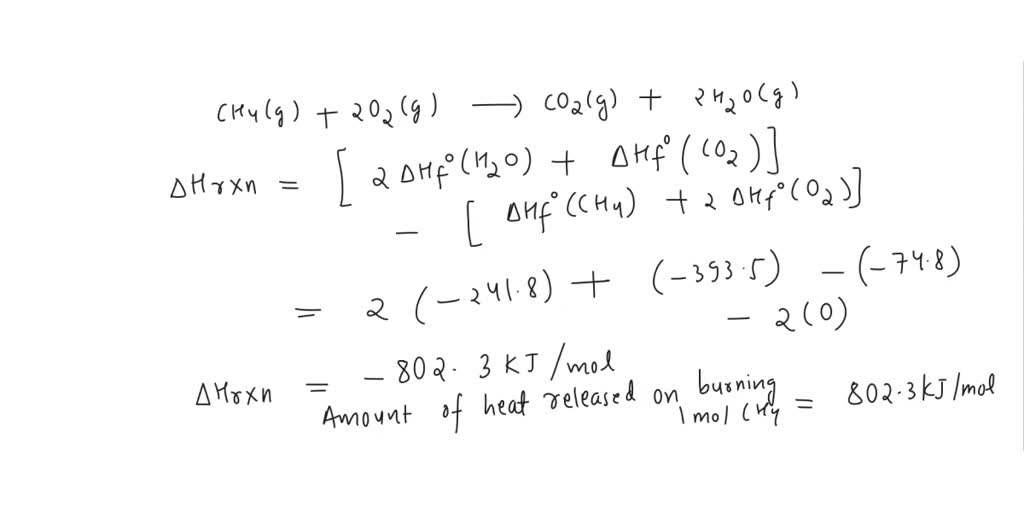 CH4(g) + 2O2(g) ⟶ CO2(g) + 2H2O(g)
ΔHrxn = [ 2ΔHf°(H2O) + ΔHf°(CO2)]
− [ ΔHf°(CH4) + 2 ΔHf°(O2)]
= 2 (−241.8) + (−393.5) − (−74.8)
− 2(0)
ΔHrxn = −802.3 KJ/mol
Amount of heat released on burning
1mol CH4 = 802.3KJ/mol